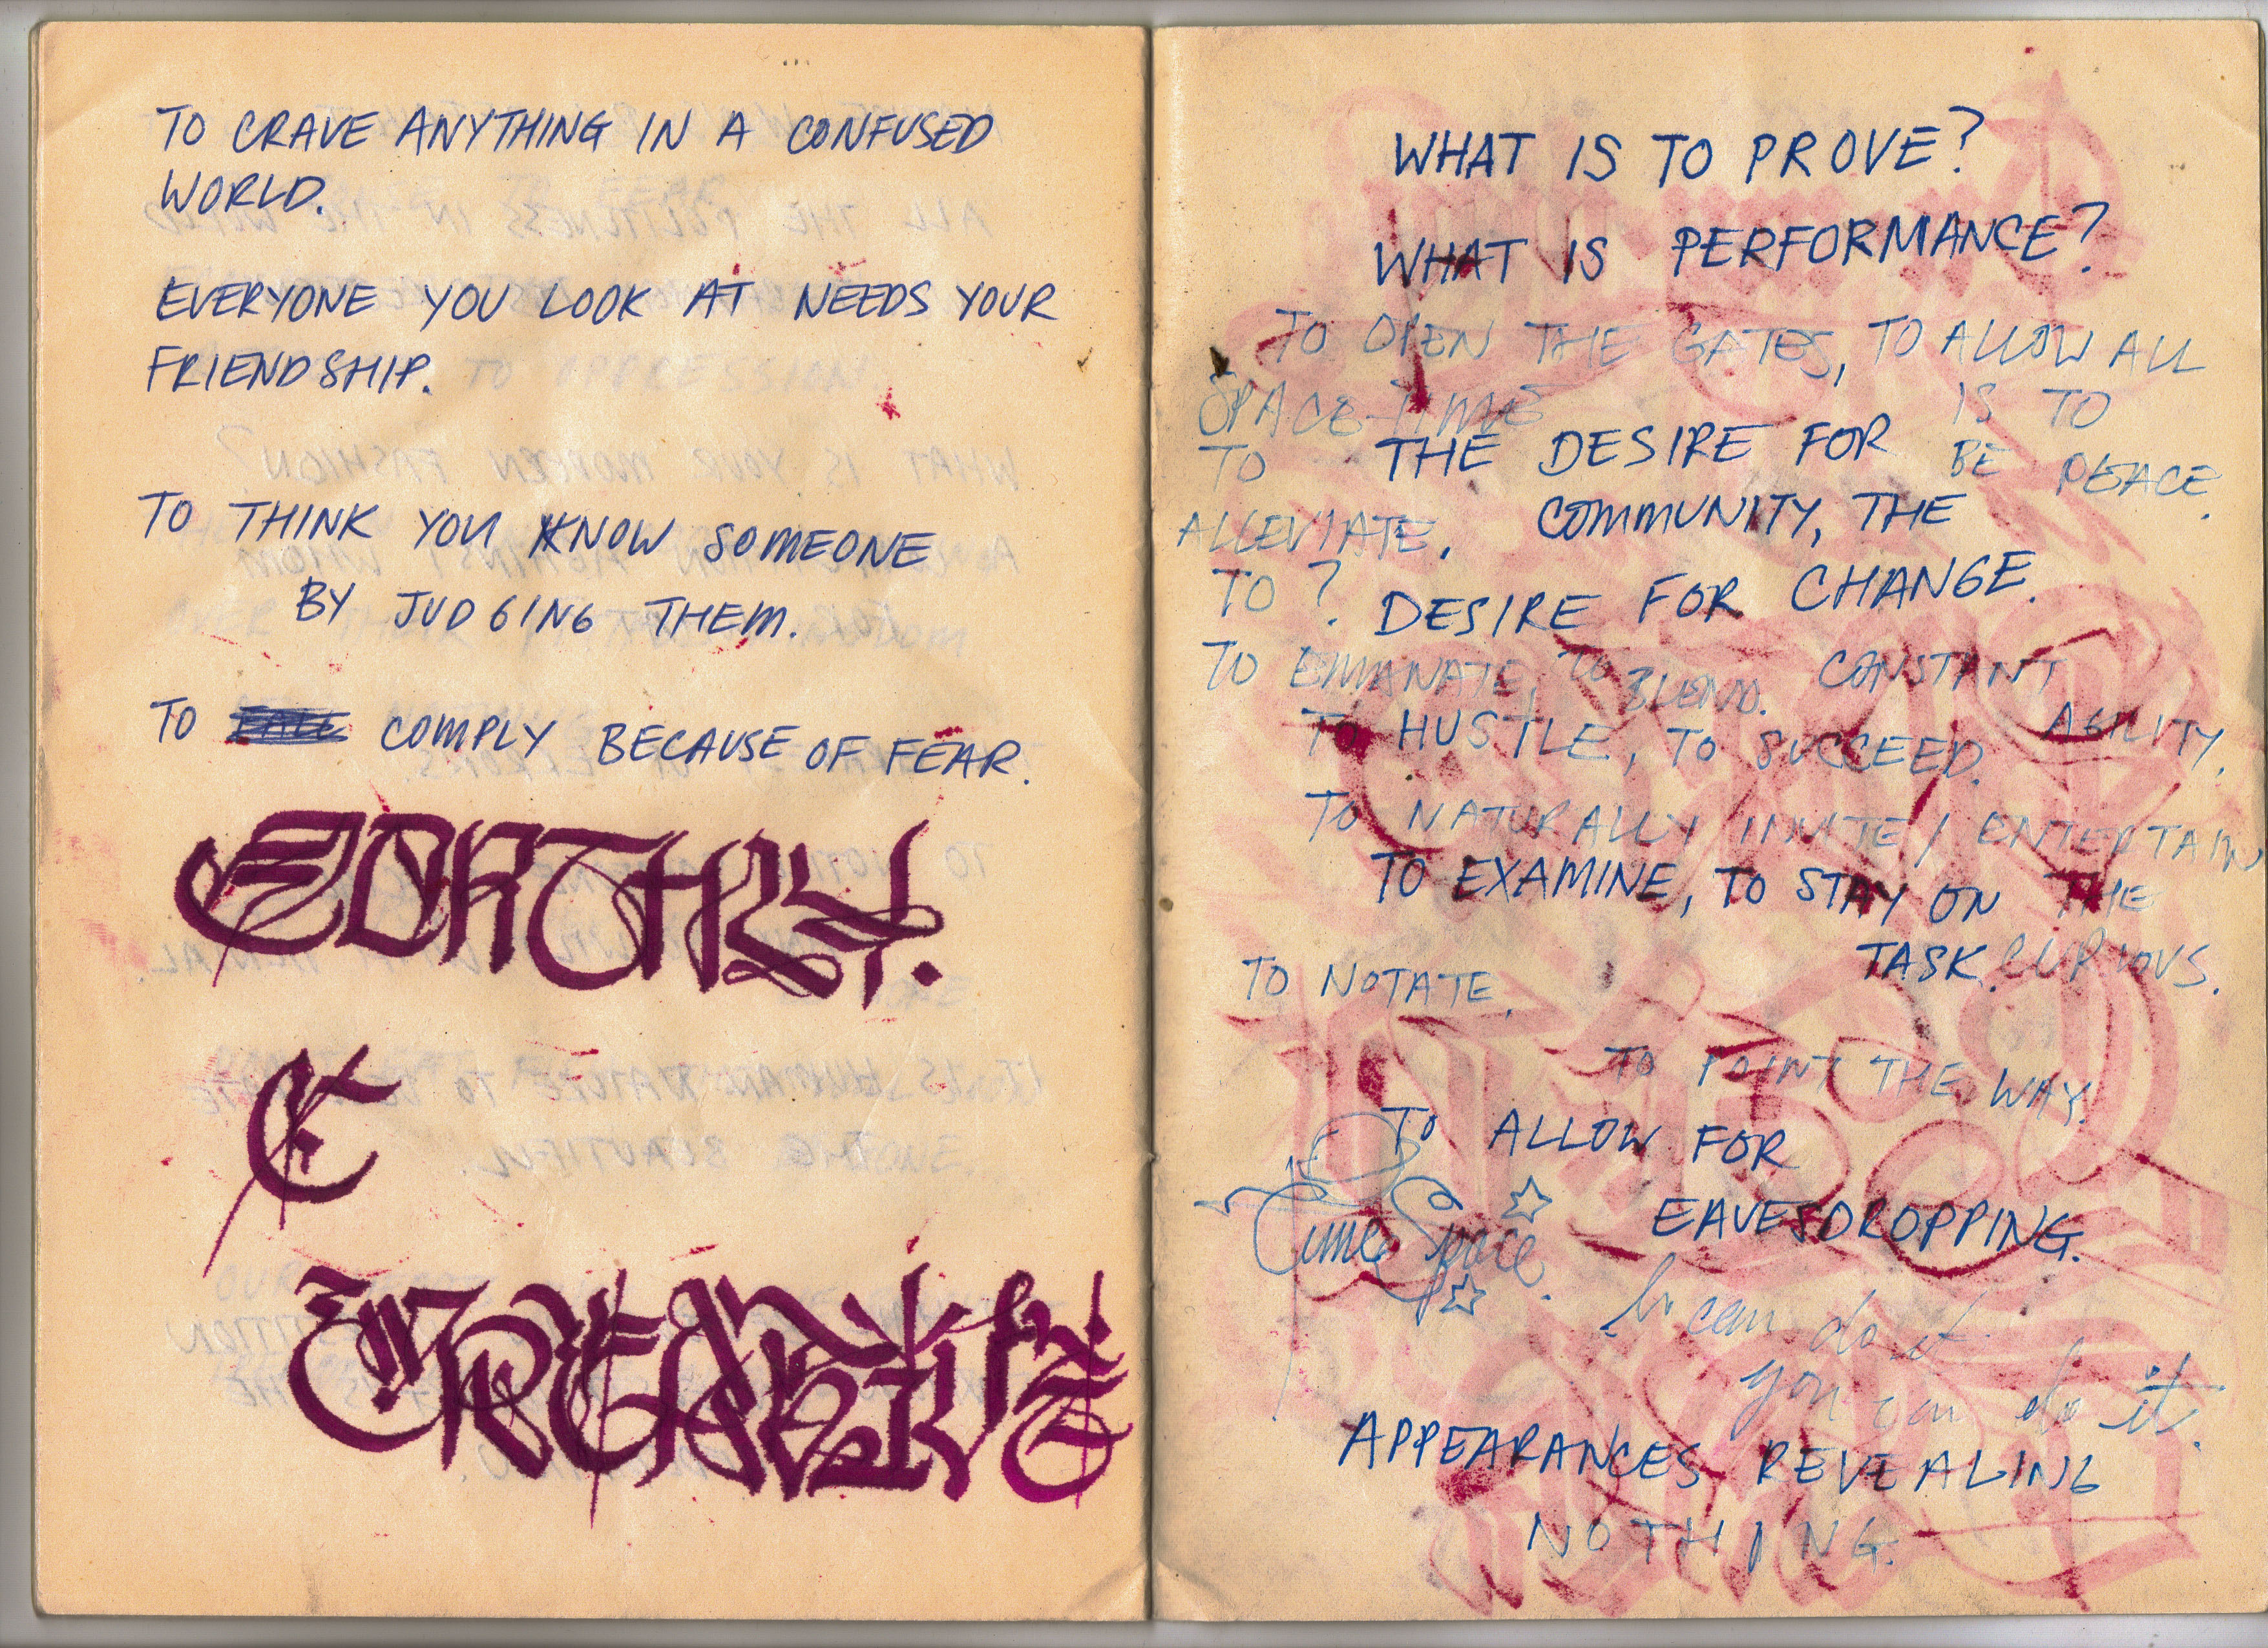 TO CRAVE ANYTHING IN A CONFUSED
WORLD.
EVERYONE YOU LOOK AT NEEDS YOUR
FRIENDSHIP.
TO THINK YOU KNOW SOMEONE
BY JUDGING THEM.
TO COMPLY BECAUSE OF FEAR.
EARTHLY.
CREATIVE
WHAT IS TO PROVE?
WHAT IS PERFORMANCE?
TO OPEN THE GATES, TO ALLOW ALL
SPACE-TIME IS TO
BE PEACE.
TO
ALLEVIATE.
TO ?
THE DESIRE FOR
COMMUNITY, THE
DESIRE FOR CHANGE.
TO EMANATE, TO BLEND. CONSTANT
AGILITY.
TO HUSTLE, TO SUCCEED.
TO NATURALLY INVITE / ENTERTAIN
TO EXAMINE, TO STAY ON THE
TASK. CURIOUS.
TO NOTATE.
TO POINT THE WAY.
TO ALLOW FOR
EAVESDROPPING.
Time Space.
can do it
you can do it.
APPEARANCES REVEALING
NOTHING.